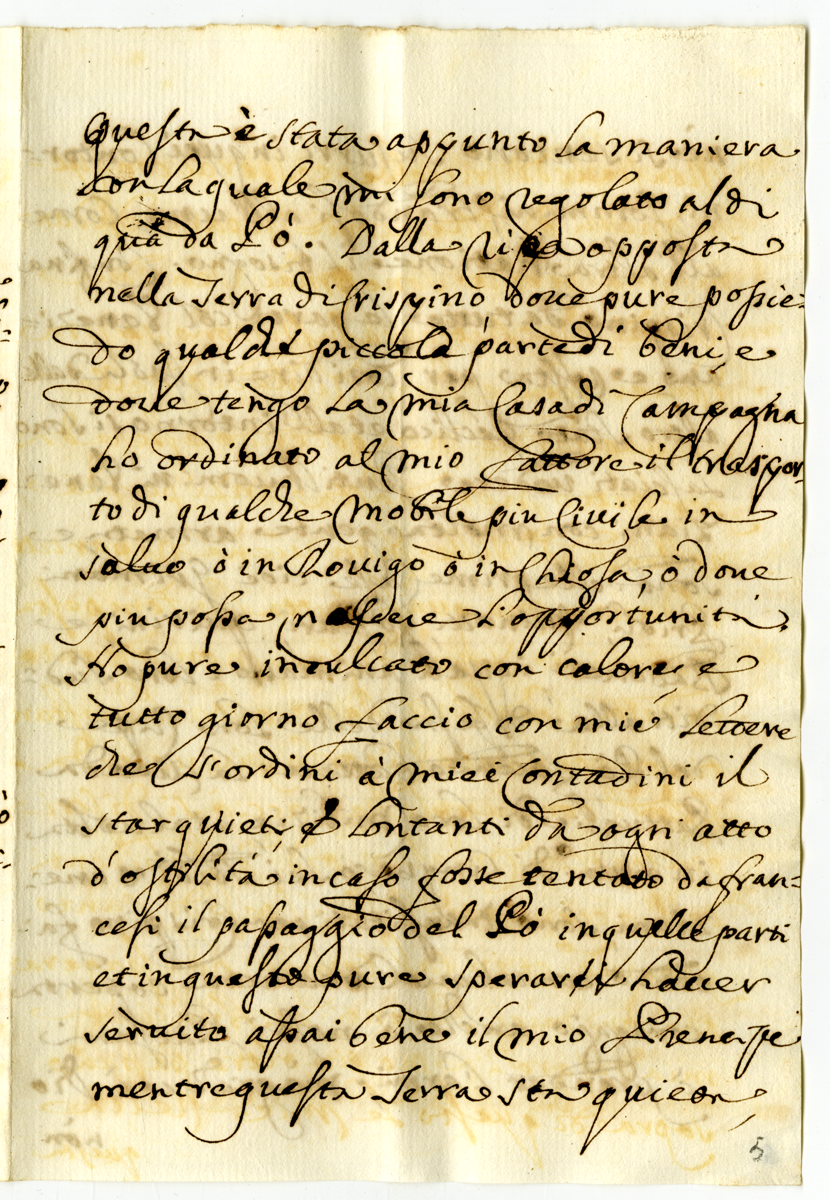 Questa è stata appunto la maniera
con la quale mi sono regolato al di
quà da Pò. Dalla ripa opposta
nella Terra di Crispino, doue pure possie=
do qualche piccola parte di beni, e
doue tengo la mia Casa di Campagna
ho ordinato al mio fattore il traspor=
to di qualche mobile piu Ciuile in
saluo ò in Rouigo ò in Chiosa, ò doue
piu possa nascere l'opportunità.
Ho pure inculcato con calore, e
tutto giorno faccio con mie lettere
che s'ordini à miei Contadini il
star quieti, e lontanti da ogni atto
d'ostilità, in caso fosse tentato da fran=
cesi il passaggio del Pò in quelle parti
et in questo pure sperarei hauer
seruito assai bene il mio Prencipe
mentre questa Terra sta quieta,
5